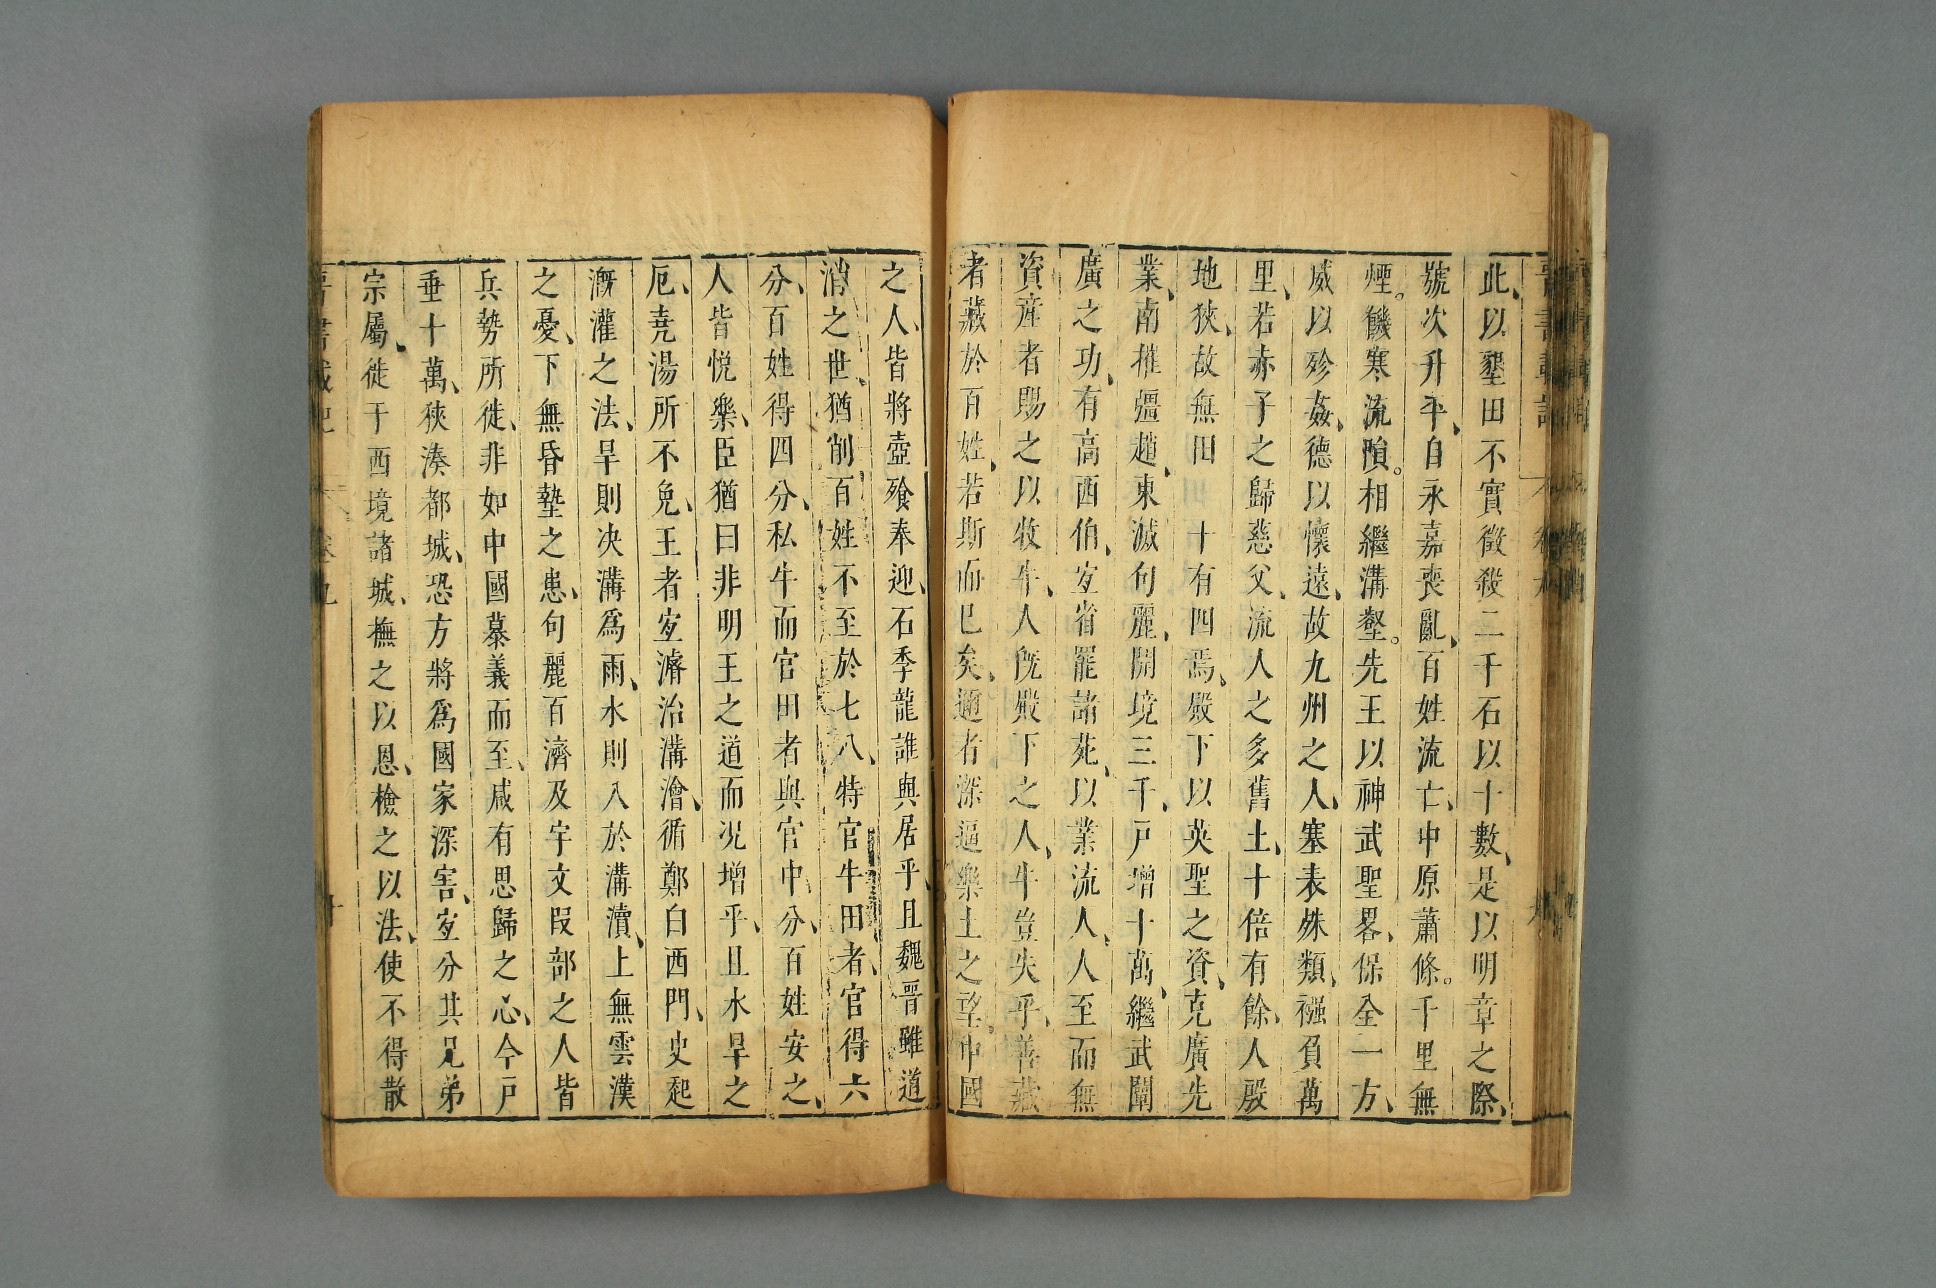 此以墾田不實徵殺二千石以十數是以明章之際
號次升平自永嘉喪亂百姓流亡中原蕭條千里無
煙饑寒流隕相繼溝壑先王以神武聖畧保全一方
威以殄姦德以懷遠故九州之人塞表殊類襁負萬
里若赤子之歸慈父流人之多舊土十倍有餘人殷
地狹故無田十有四焉殿下以英聖之資克廣先
業南摧彊趙東滅句麗開境三千戸增十萬繼武闡
廣之功有高西伯宐省罷諸苑以業流人人至而無
資產者賜之以牧牛人旣殿下之人牛豈失乎善藏
者藏於百姓若斯而已矣邇者深逼樂土之望中國
之人皆將壺飱奉迎石季龍誰與居乎且魏晉雖道
消之世猶削百姓不至於七八特官牛田者官得六
分百姓得四分私牛而官田者與官中分百姓安之
人皆悅樂臣猶曰非明王之道而况增乎且水旱之
厄堯湯所不免王者宐濬治溝澮循鄭白西門史起
溉灌之法旱則决溝爲雨水則入於溝瀆上無雲漢
之憂下無昏墊之患句麗百濟及宇文段部之人皆
兵勢所徙非如中國慕義而至咸有思歸之心今戸
垂十萬狹湊都城恐方將爲國家深害宐分其兄弟
宗屬徙于西境諸城撫之以恩檢之以法使不得散
晉書載記 卷九 十